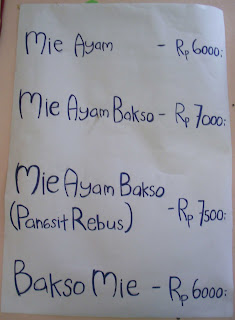 Mie Ayam - Rp 6000:
Mie Ayam Bakso - Rp 7000:
Mie Ayam Bakso
(Pangsit Rebus) - Rp 7500:
Bakso Mie - Rp 6000: